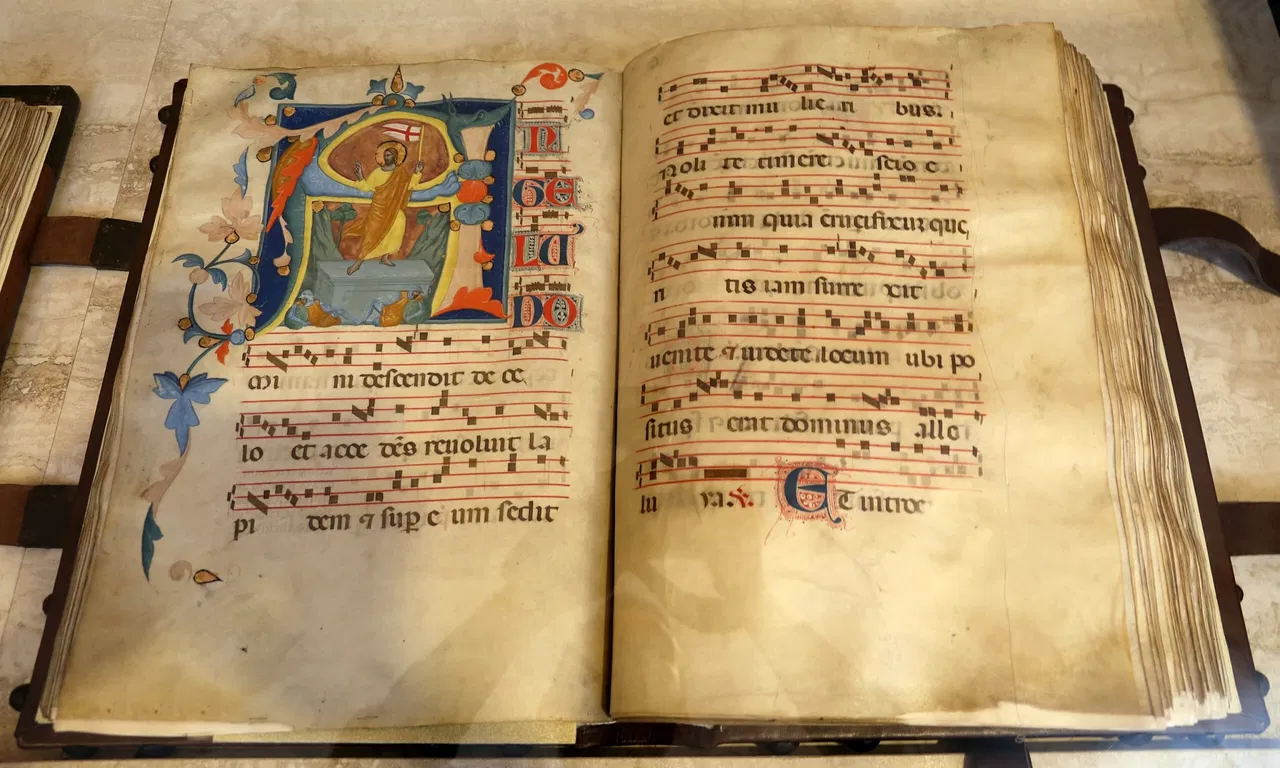 A
N
GE
LU'
DO
mi ni descendit de ce
lo et acce dēs reuoluit la
pi dem ⁊ sup e um sedit
et dixit mu lie ri bus:
Noli te timere scio e
nim quia crucifixum que
ri tis iam surre xit
uenite ⁊ uidete locum ubi po
situs erat dominus alle
lu ya. ℣. ET introe